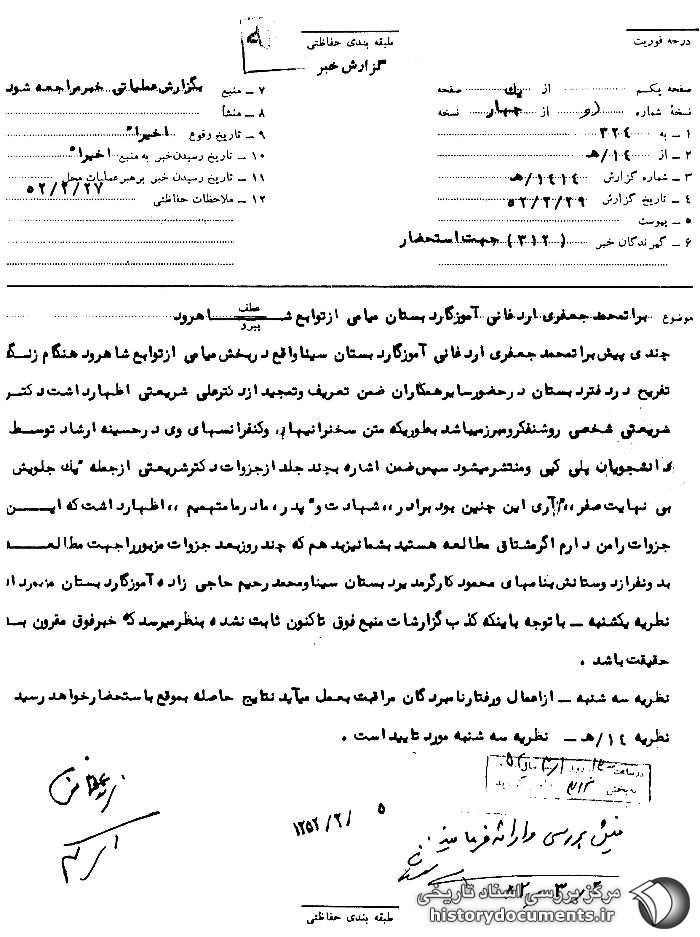 درجه فوریت
طبقه بندی حفاظتی
گزارش خبر
صفحه یکم از یك صفحه
نسخهٔ شماره دو از چهار نسخه
۱ – به ۳۲۴
۲ – از ۱۴/هـ
۳ – شماره گزارش ۱۴۱۴/هـ
۴ – تاریخ گزارش ۵۲/۲/۲۹
۵ – پیوست
۶ – گیرندگان خبر (۳۱۲) جهت استحضار
۷ – منبع بگزارش عملیاتی خبر مراجعه شود
۸ – منشأ
۹ – تاریخ وقوع اخیرا"
۱۰ – تاریخ رسیدن خبر به منبع اخیرا"
۱۱ – تاریخ رسیدن خبر برهبر عملیات محل ۵۲/۲/۲۷
۱۲ – ملاحظات حفاظتی
موضوع براتمحمد جعفری اردغانی آموزگار دبستان میامی از توابع شاهرود
عطف
پیرو
چندی پیش براتمحمد جعفری اردغانی آموزگار دبستان سینا واقع در بخش میامی از توابع شاهرود هنگام زنگ
تفریح در دفتر دبستان در حضور سایر همکاران ضمن تعریف و تمجید از دکتر علی شریعتی اظهار داشت دکتر
شریعتی شخصی روشنفکر و مبرز میباشد بطوریکه متن سخنرانیها، و کنفرانسهای وی در حسینه ارشاد توسط
دانشجویان پلی کپی و منتشر میشود سپس ضمن اشاره بچند جلد از جزوات دکتر شریعتی از جمله "یك جلویش
بی نهایت صفر،، "آری این چنین بود برادر،، شهادت و "پدر، مادر ما متهمیم،، اظهار داشت که این
جزوات را من دارم اگر مشتاق مطالعه هستید بشما نیز بدهم که چند روز بعد جزوات مزبور را جهت مطالعه
بدونفر از دوستانش بنامهای محمود کارگر مدیر دبستان سینا و محمد رحیم حاجی زاده آموزگار دبستان مزبور داد
نظریه یکشنبه – با توجه باینکه کذب گزارشات منبع فوق تاکنون ثابت نشده بنظر میرسد که خبر فوق مقرون بـه
حقیقت باشد .
نظریه سه شنبه – از اعمال و رفتار نامبردگان مراقبت بعمل میآید نتایج حاصله بموقع باستحضار خواهد رسید
نظریه ۱۴/هـ – نظریه سه شنبه مورد تایید است .
۵ /۲/ ۱۳۵۲
بررسی و ارائه فرمایید
طبقه بندی حفاظتی
مرکز بررسی اسناد تاریخی
historydocuments.ir